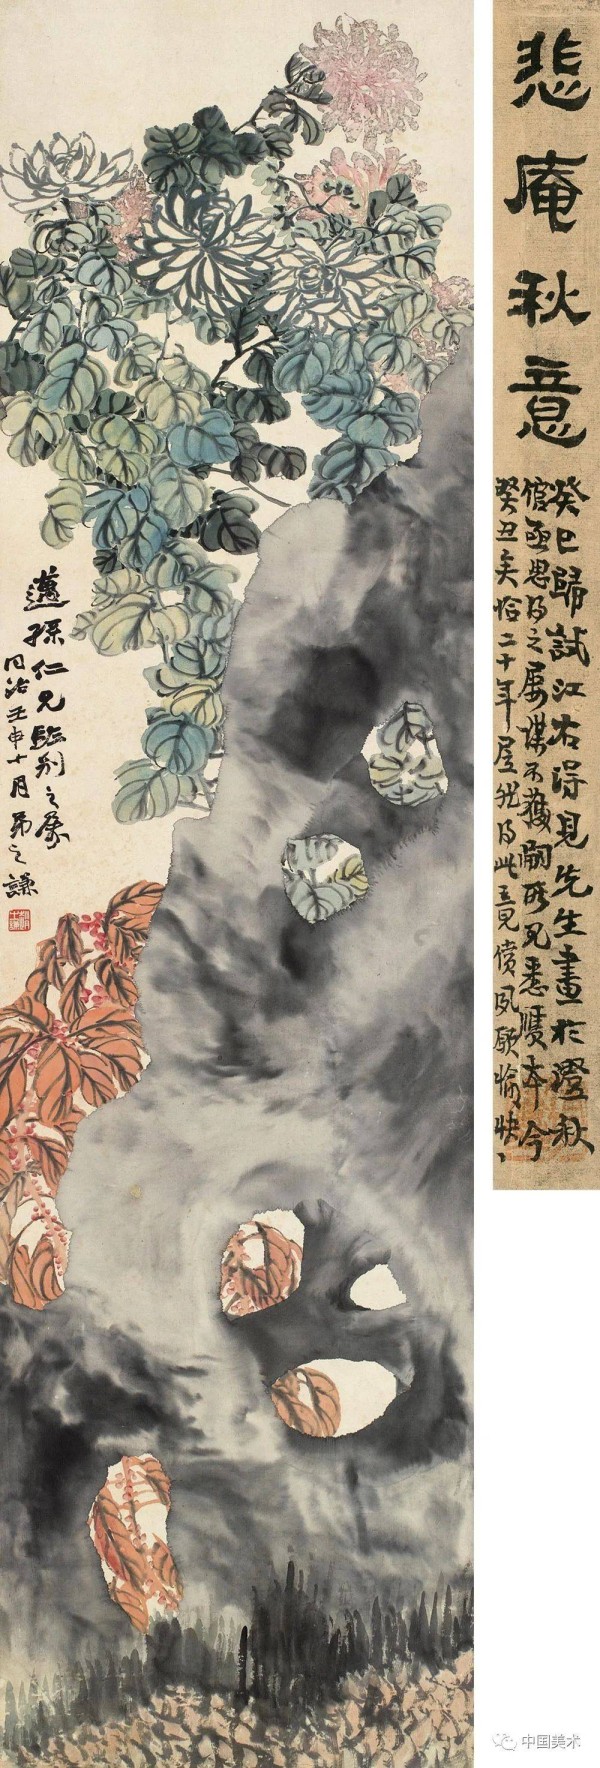 悲庵秋意
癸巳歸試江右得見先生畫於澄秋
館亟思得之屢謀不獲嗣所見悉贋本今
癸丑矣恰二十年屋於得此意償夙願愉快
邁孫仁兄臨別之屬
同治壬申十月弟之謙
中国美术